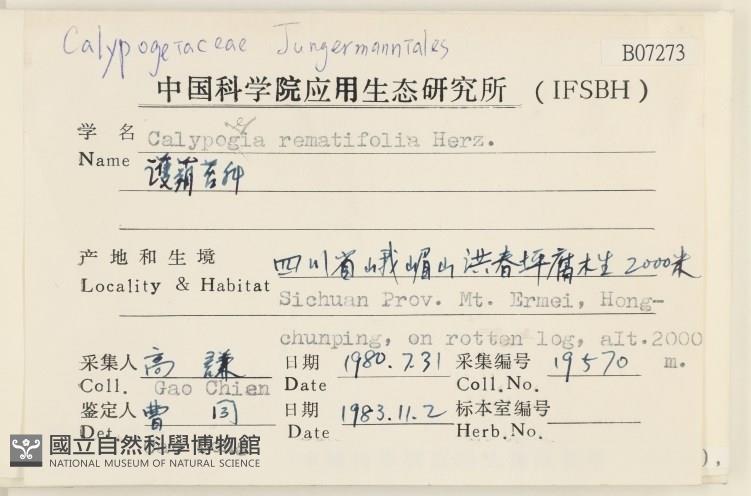 Calypogeiaceae Jungermanniales
B07273
中国科学院应用生态研究所 (IFSBH)
学名 Calypogia rematifolia Herz.
Name 護蒴苔科
产地和生境 四川省峨嵋山洪春坪腐木生 2000米
Locality & Habitat Sichuan Prov. Mt. Ermei, Hong-
chunping, on rotten log, alt.2000
采集人 高謙 日期 1980.7.31 采集编号 19570 m.
Coll. Gao Chien Date Coll.No.
鉴定人 曹同 日期 1983.11.2 标本室编号
Det. Date Herb.No.
國立自然科學博物館
NATIONAL MUSEUM OF NATURAL SCIENCE
),